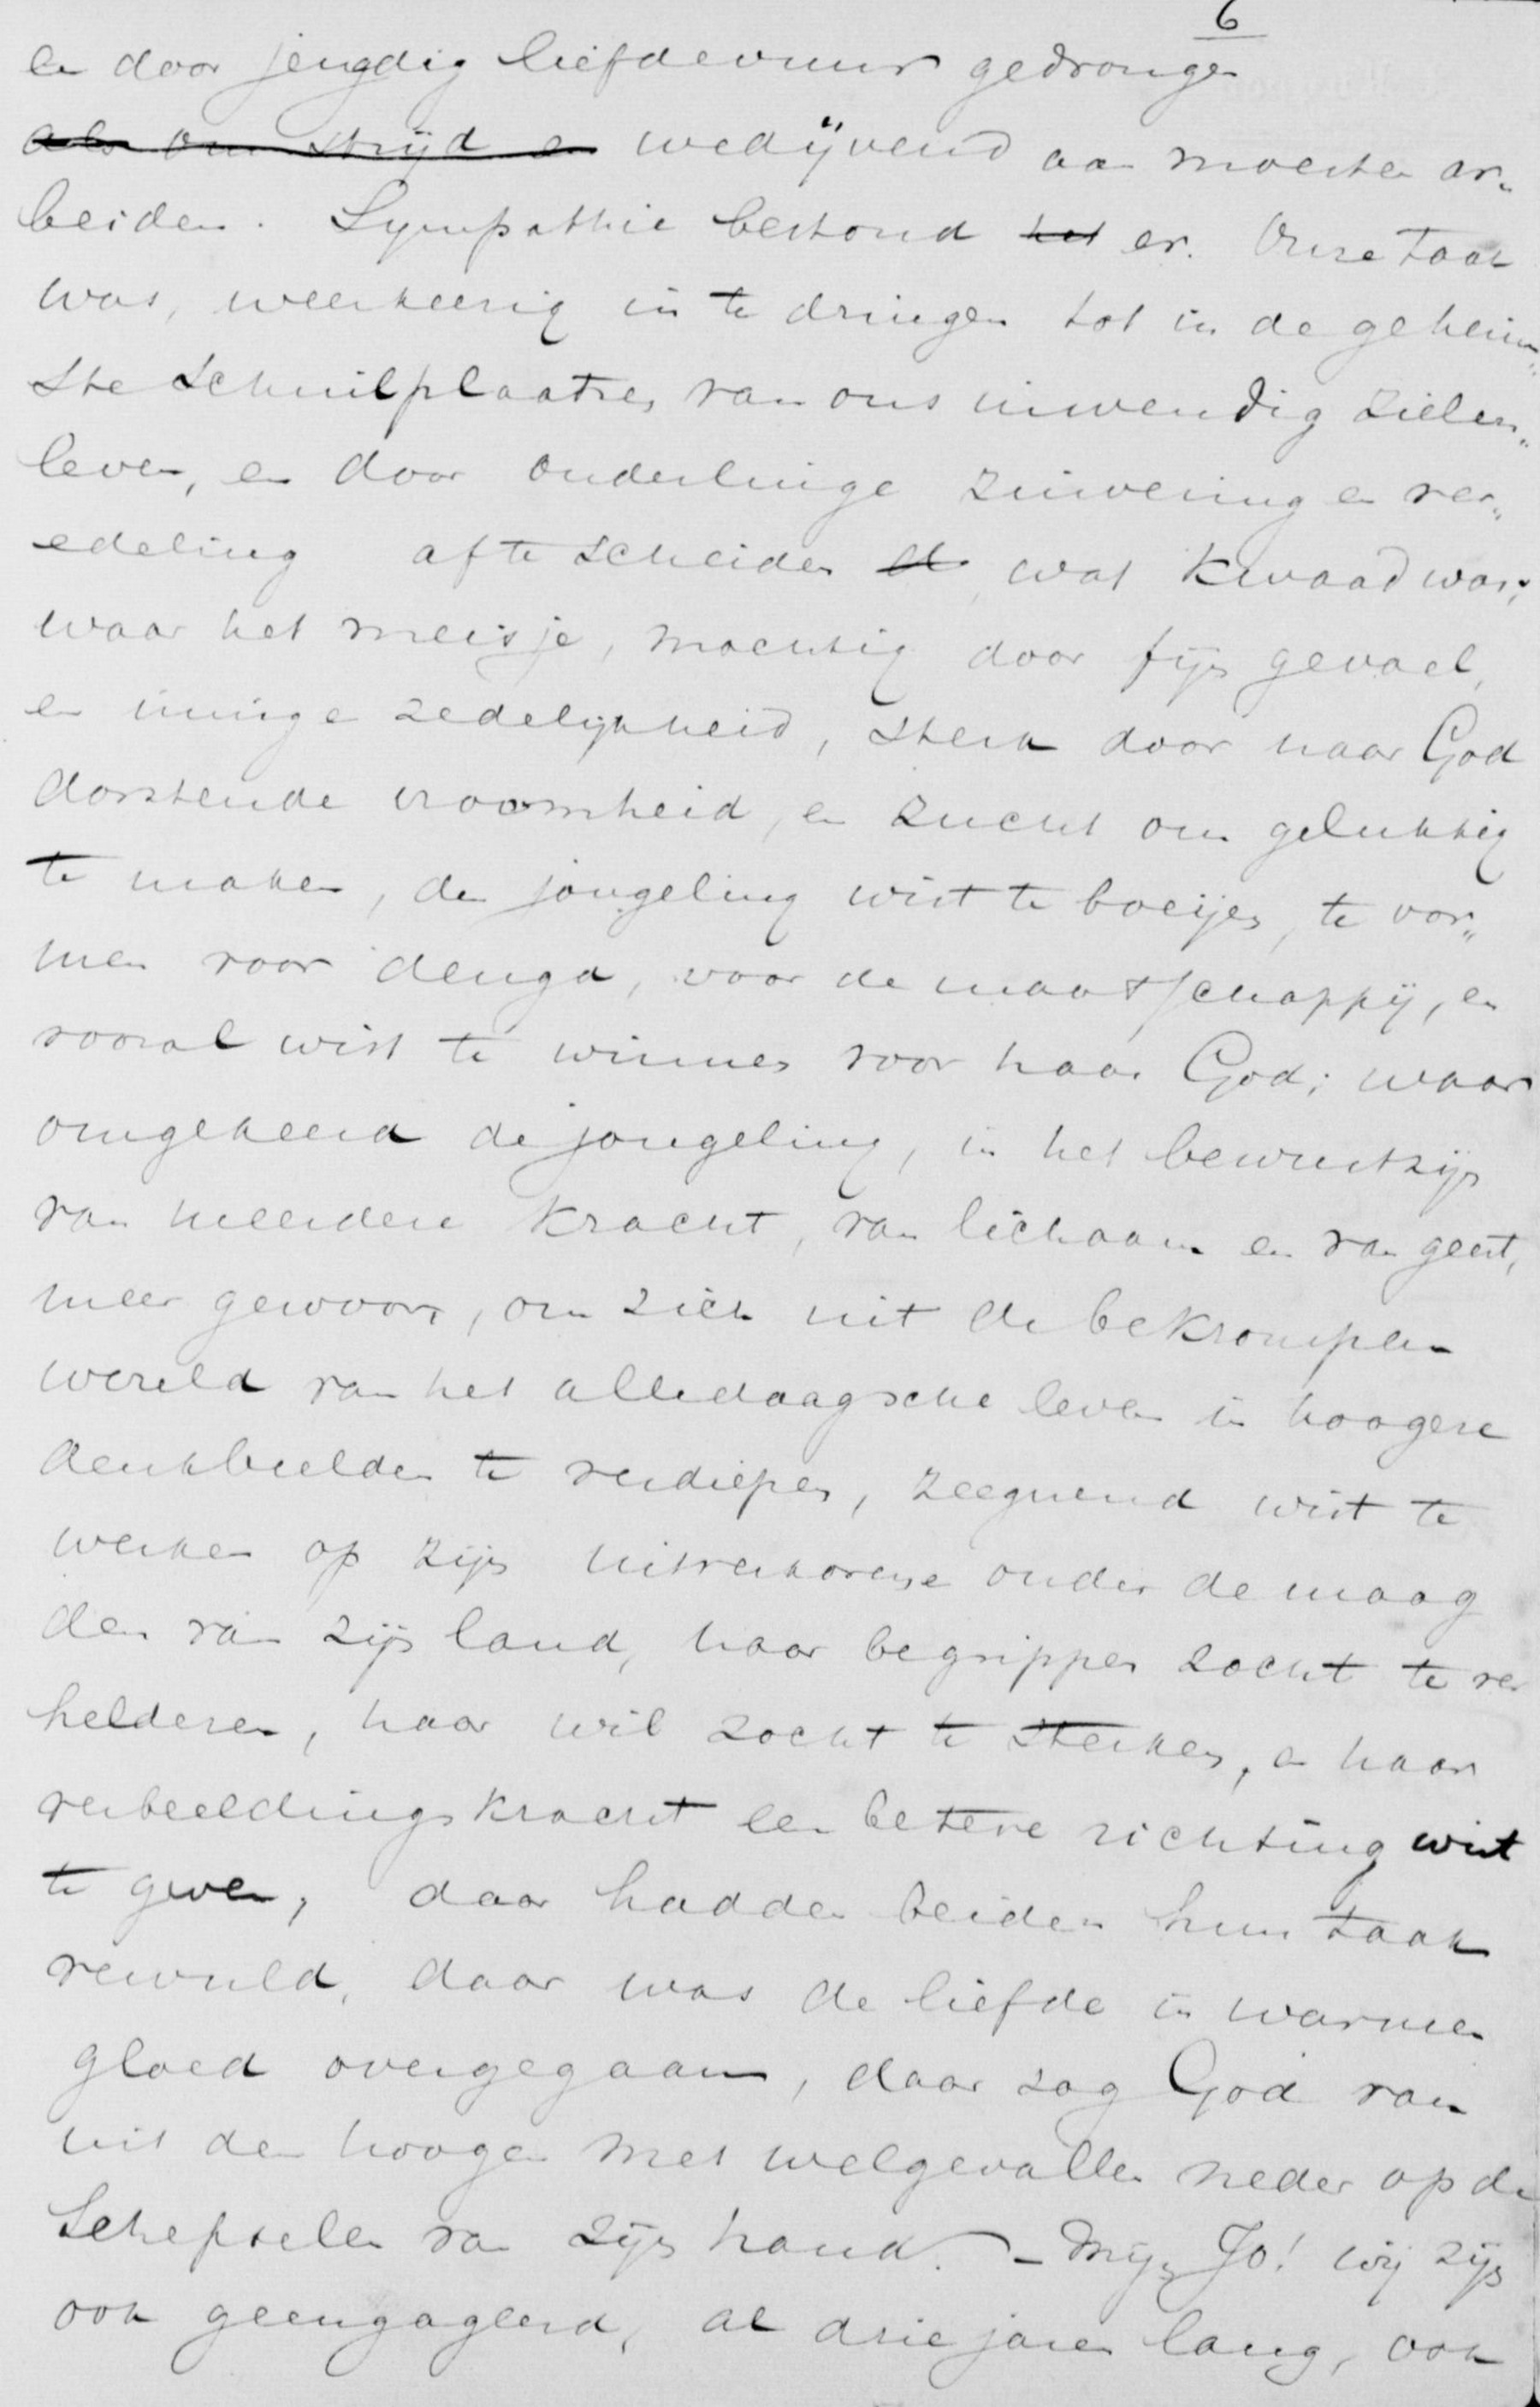 6
en door jeugdig liefdevuur gedrongen
als om strijd en wedijverend aan moesten ar„
beiden. Sympathie bestond het er. Onze taak
was, weerkeerig in te dringen tot in de geheim„
ste schuilplaatsen van ons inwendig zielen„
leven, en door onderlinge zuivering en ver„
edeling af te scheiden wat kwaad was;
waar het meisje, machtig door fijn gevoel,
en innige zedelijkheid, sterk door naar God
dorstende vroomheid, en zucht om gelukkig
te maken, den jongeling wist te boeijen, te vor„
men voor deugd, voor de maatschappij, en
vooral wist te winnen voor haar God; waar
omgekeerd de jongeling, in het bewustzijn
van meerdere kracht, van lichaam en van geest,
meer gewoon, om zich uit de bekrompen
wereld van het alledaagsche leven in hoogere
denkbeelden te verdiepen, zeegnend wist te
werken op zijn uitverkorene onder de maag
den van zijn land, haar begrippen zocht te ver
helderen, haar wil zocht te sterken, en haar
verbeeldingskracht een betere richting wist
te geven, daar hadden beiden hun taak
vervuld, daar was de liefde in warmen
gloed overgegaan, daar zag God van
uit den hoogen met welgevallen neder op de
Schepselen van zijn hand. – Mijn Jo! wij zijn
ook geengageerd, al drie jaren lang, ook